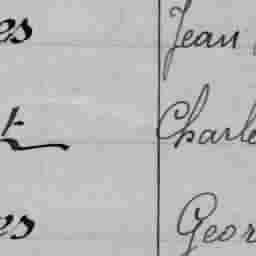 es Jean
t Charle
es Geor